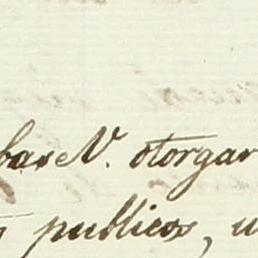 base N. otorgar
publicos, u